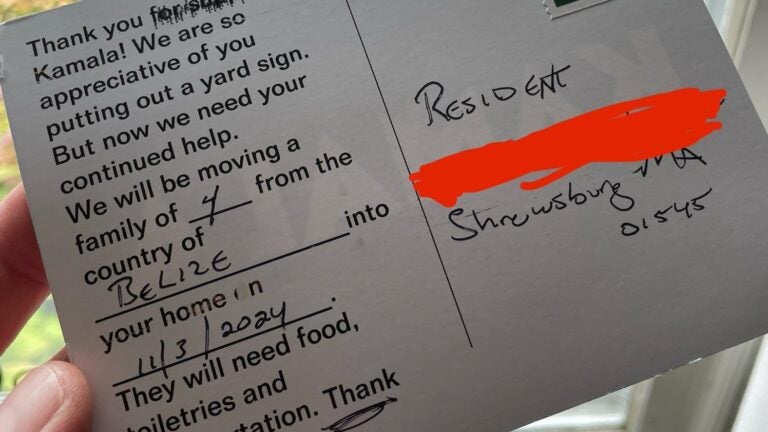 Thank you for
Kamala! We are so
appreciative of you
putting out a yard sign.
But now we need your
continued help.
We will be moving a
family of 4 from the
country of
BELIZE into
your home on
11/3/2024.
They will need food,
toiletries and
tation. Thank
RESIDENT
Shrewsbury MA
01545